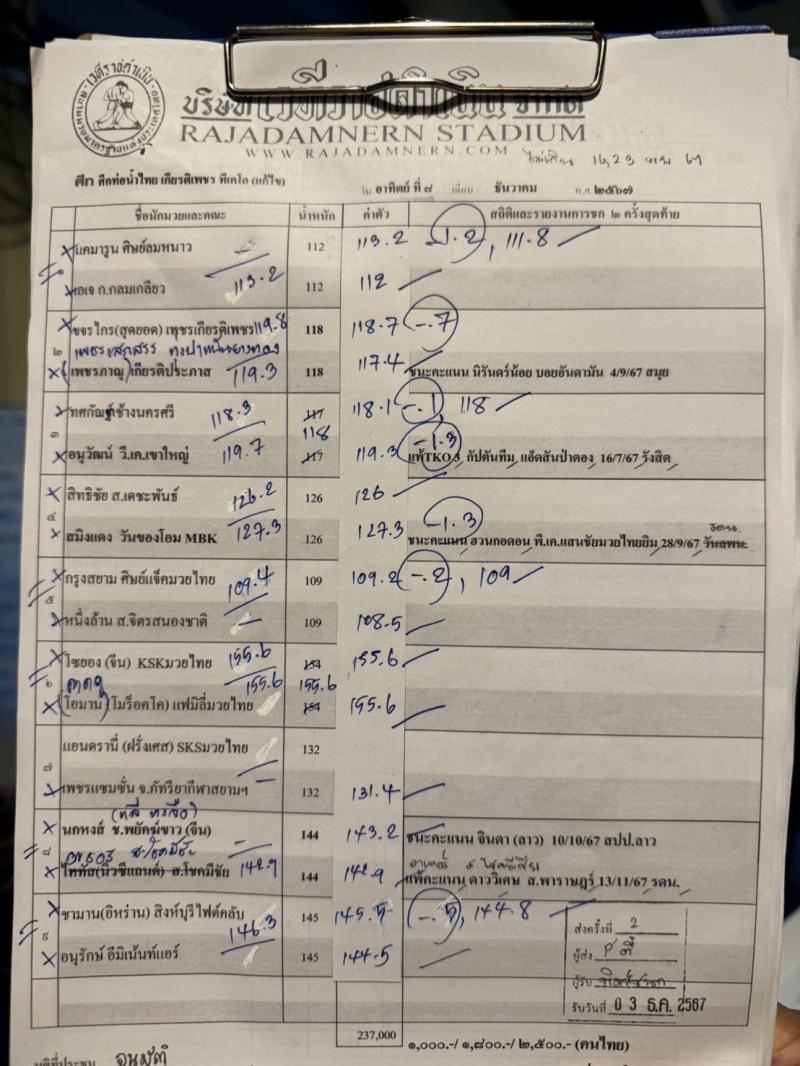 บริษัท เวทีราชดำเนิน จำกัด
RAJADAMNERN STADIUM
WWW.RAJADAMNERN.COM
16,23 67
ศึก ศึกท่อน้ำไทย เกียรติเพชร ทีเคโอ (แก้ไข) วัน อาทิตย์ ที่ ๘ เดือน ธันวาคม พ.ศ ๒๕๖๗
ชื่อนักมวยและคณะ น้ำหนัก ค่าตัว สถิติและรายงานการชก ๒ ครั้งสุดท้าย
๑
แคมารูน ศิษย์ลมหนาว 112 113.2 -1.2, 111.8
เอเจ ก.กลมเกลียว 113.2 112 112
๒
ขจรไกร(สุดยอด) เพชรเกียรติเพชร 119.8 118 118.7 -.7
(เพชรภาณุ)เกียรติประภาส 119.3 118 117.4 ชนะคะแนน นิรันดร์น้อย บอยอันดามัน 4/9/67 สมุย
๓
ทศกัณฑ์ช้างนครศรี 118.3 117 118.1 -.1, 118
118
อนุวัฒน์ วี.เค.เขาใหญ่ 119.7 117 119.3 -1.3 แพ้TKO 3 กัปตันทีม แอ๊ดสันป่าตอง 16/7/67 รังสิต
๔
สิทธิชัย ส.เดชะพันธ์ 126.2 126 126
สมิงแดง วันของโอม MBK 127.3 126 127.3 -1.3 ชนะคะแนน ฮวนกอดอน พี.เค.แสนชัยมวยไทยยิม 28/9/67 วันลพน.
๕
กรุงสยาม ศิษย์แจ็คมวยไทย 109.4 109 109.2 -.2, 109
หนึ่งล้าน ส.จิตรสนองชาติ 109 108.5
๖
โซยอง (จีน) KSKมวยไทย 155.6 154 155.6
155.6 155.6
(โอมาน) โมร็อคโค) แฟมิลี่มวยไทย 154 155.6
๗
แอนดรานี่ (ฝรั่งเศส) SKSมวยไทย 132
เพชรแซมซั่น จ.ภัทรียากีฬาสยามฯ 132 131.4
๘
นกหงส์ ช.พยัคฆ์ขาว (จีน) 144 143.2 ชนะคะแนน จินตา (ลาว) 10/10/67 สปป.ลาว
ไททัส(นิวซีแลนด์) ส.โชคมีชัย 142.9 144 142.9 แพ้คะแนน ดาววิเศษ ส.พาราษฎร์ 13/11/67 รดน.
๙
ชามาน(อิหร่าน) สิงห์บุรีไฟต์คลับ 146.3 145 145.5 -.5, 144.8
อนุรักษ์ อีมิเน้นท์แอร์ 145 144.5
ส่งครั้งที่ 2
ผู้ส่ง
ผู้รับ
รับวันที่ 0 3 ธ.ค. 2567
237,000 ๑,๐๐๐.-/ ๑,๘๐๐.-/ ๒,๕๐๐.- (คนไทย)
มติที่ประชุม อนุมัติ